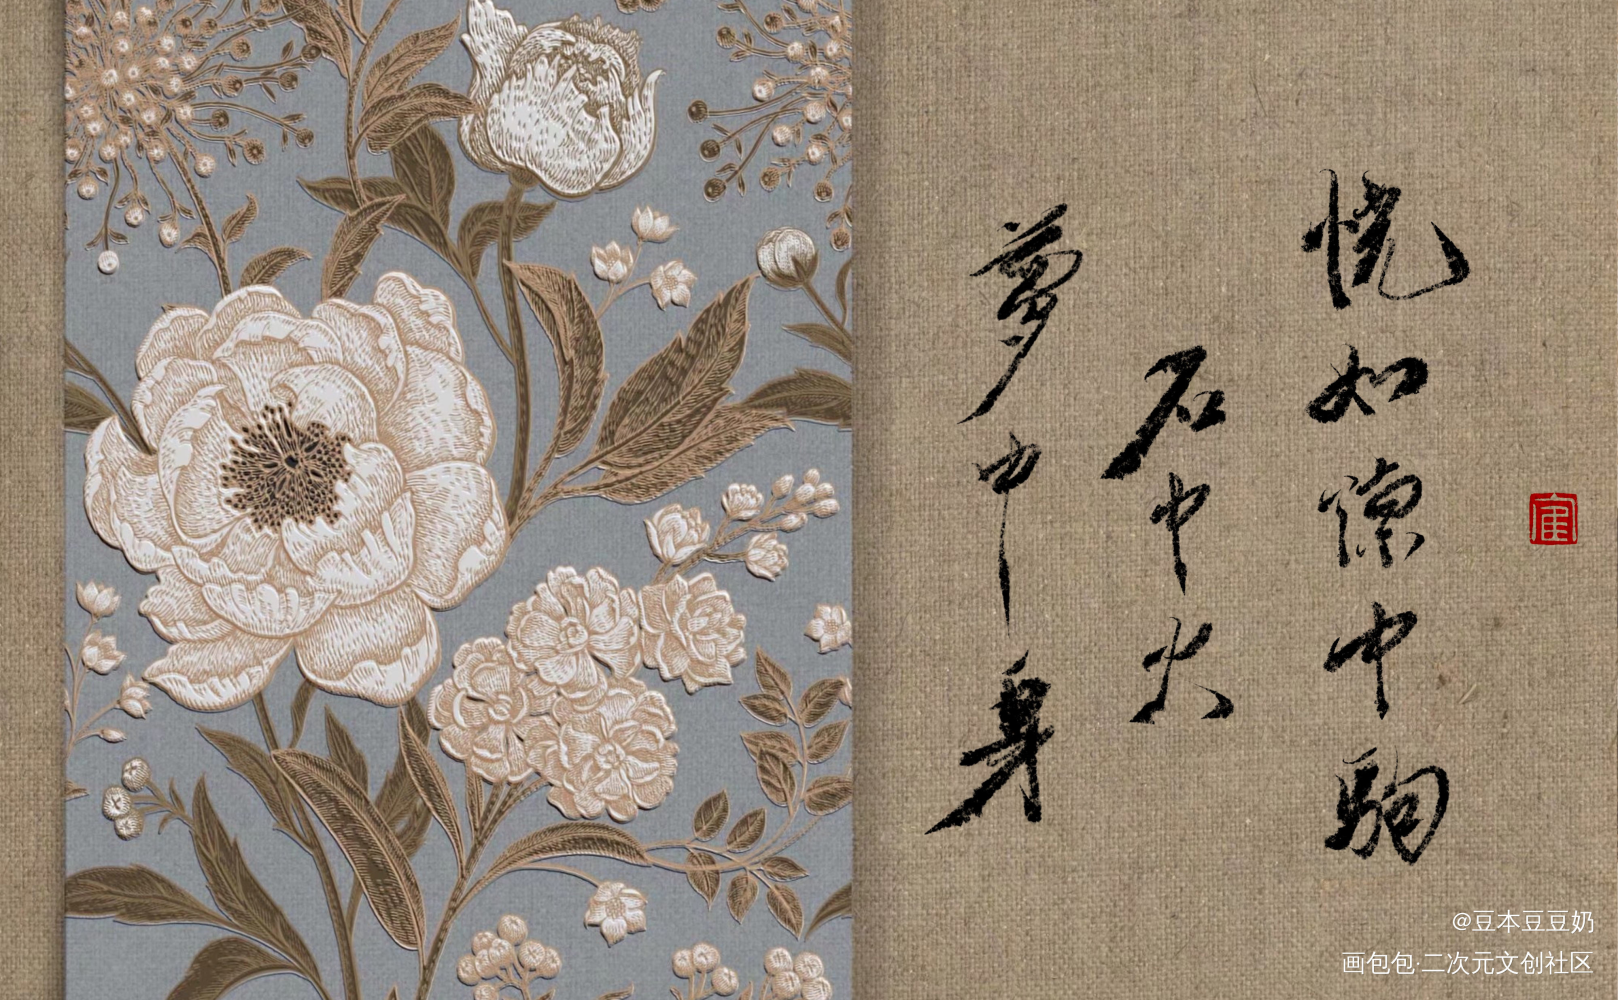 恍如隙中驹
石中火
梦中身
@豆本豆豆奶
画包包·二次元文创社区